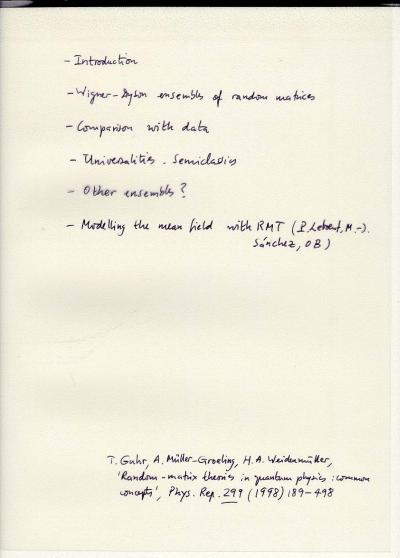 - Introduction
- Wigner-Dyson ensembles of random matrices
- Comparison with data
- Universalities. Semiclassics
- Other ensembles?
- Modelling the mean field with RMT (P. Leboeuf, M.-J.
Sánchez, OB)
T. Guhr, A. Müller-Groeling, H.A. Weidenmüller,
'Random-matrix theories in quantum physics: common
concepts', Phys. Rep. 299 (1998) 189-498